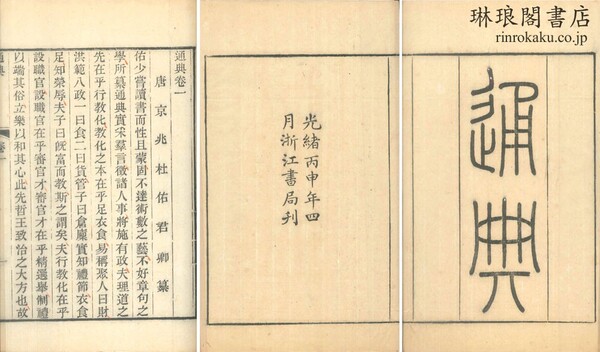 琳琅閣書店
rinrokaku.co.jp
通典
光緒丙申年四
月浙江書局刊
通典卷一
唐京兆杜佑君卿纂
佑少嘗讀書而性且蒙固不達術數之藝不好章句之
學所纂通典實采羣言徵諸人事將施有政夫理道之
先在乎行教化教化之本在乎足衣食易稱聚人曰財
洪範八政一曰食二曰貨管子曰倉廩實知禮節衣食
足知榮辱夫子曰旣富而教斯之謂矣夫行教化在乎
設職官設職官在乎審官才審官才在乎精選舉制禮
以端其俗立樂以和其心此先哲王致治之大方也故